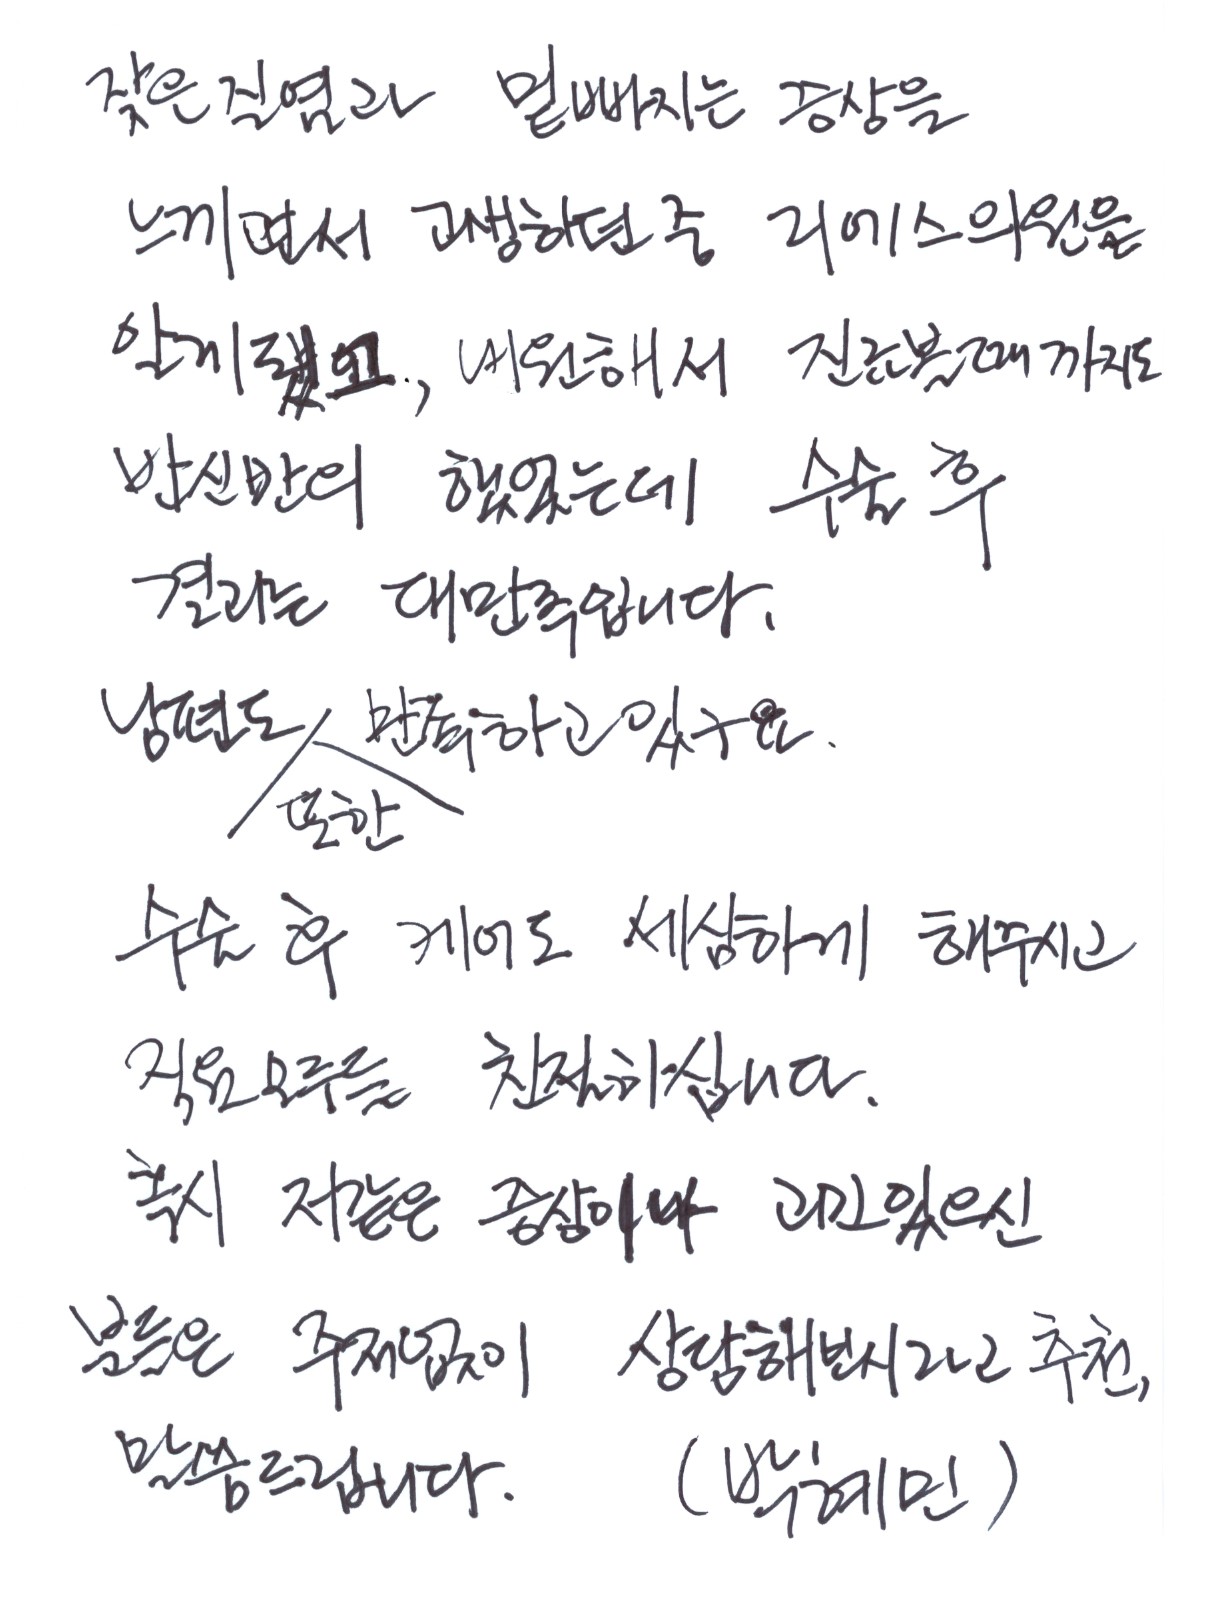 잦은질염과 밑빠지는 증상을
느끼면서 고생하던중 리에스의원을
알게됐고, 내원해서 진료볼때까지도
반신반의 했었는데 수술 후
결과는 대만족입니다.
남편도 만족하고있구요.
또한
수술 후 케어도 세심하게 해주시고
직원모두들 친절하십니다.
혹시 저같은 증상이나 고민있으신
분들은 주저없이 상담해보시라고 추천,
말씀드립니다. (박혜민)